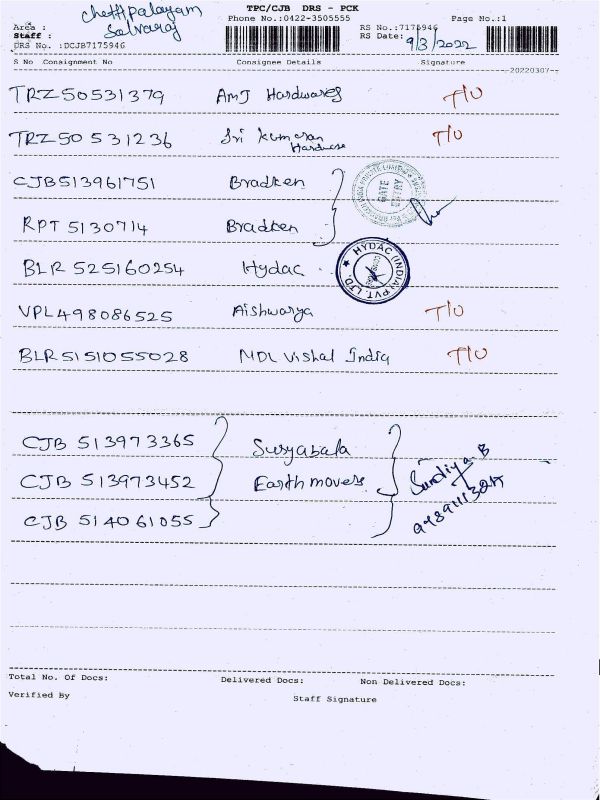 TPC/CJB DRS - PCK
Chettipalayam
Phone No.:0422-3505555
Page No.:1
Area :
RS No.:7175946
Staff : Selvaraj
RS Date: 9/3/2022
DRS No. :DCJB7175946
S No Consignment No Consignee Details Signature
20220307
TRZ50531379 AMJ Hardwares T/U
TRZ 50 531236 Sri Kumaran Hardware T/U
CJB513961751 Bradken
RPT 5130714 Bradken
BLR 525160254 Hydac
HYDAC (INDIA) PVT. LTD.
VPL498086525 Aishwarya T/U
BLR5151055028 MDL Vishal India T/U
CJB 513973365 Suryabala
CJB 513973452 Earth movers
CJB 514061055
Total No. Of Docs: Delivered Docs: Non Delivered Docs:
Verified By Staff Signature